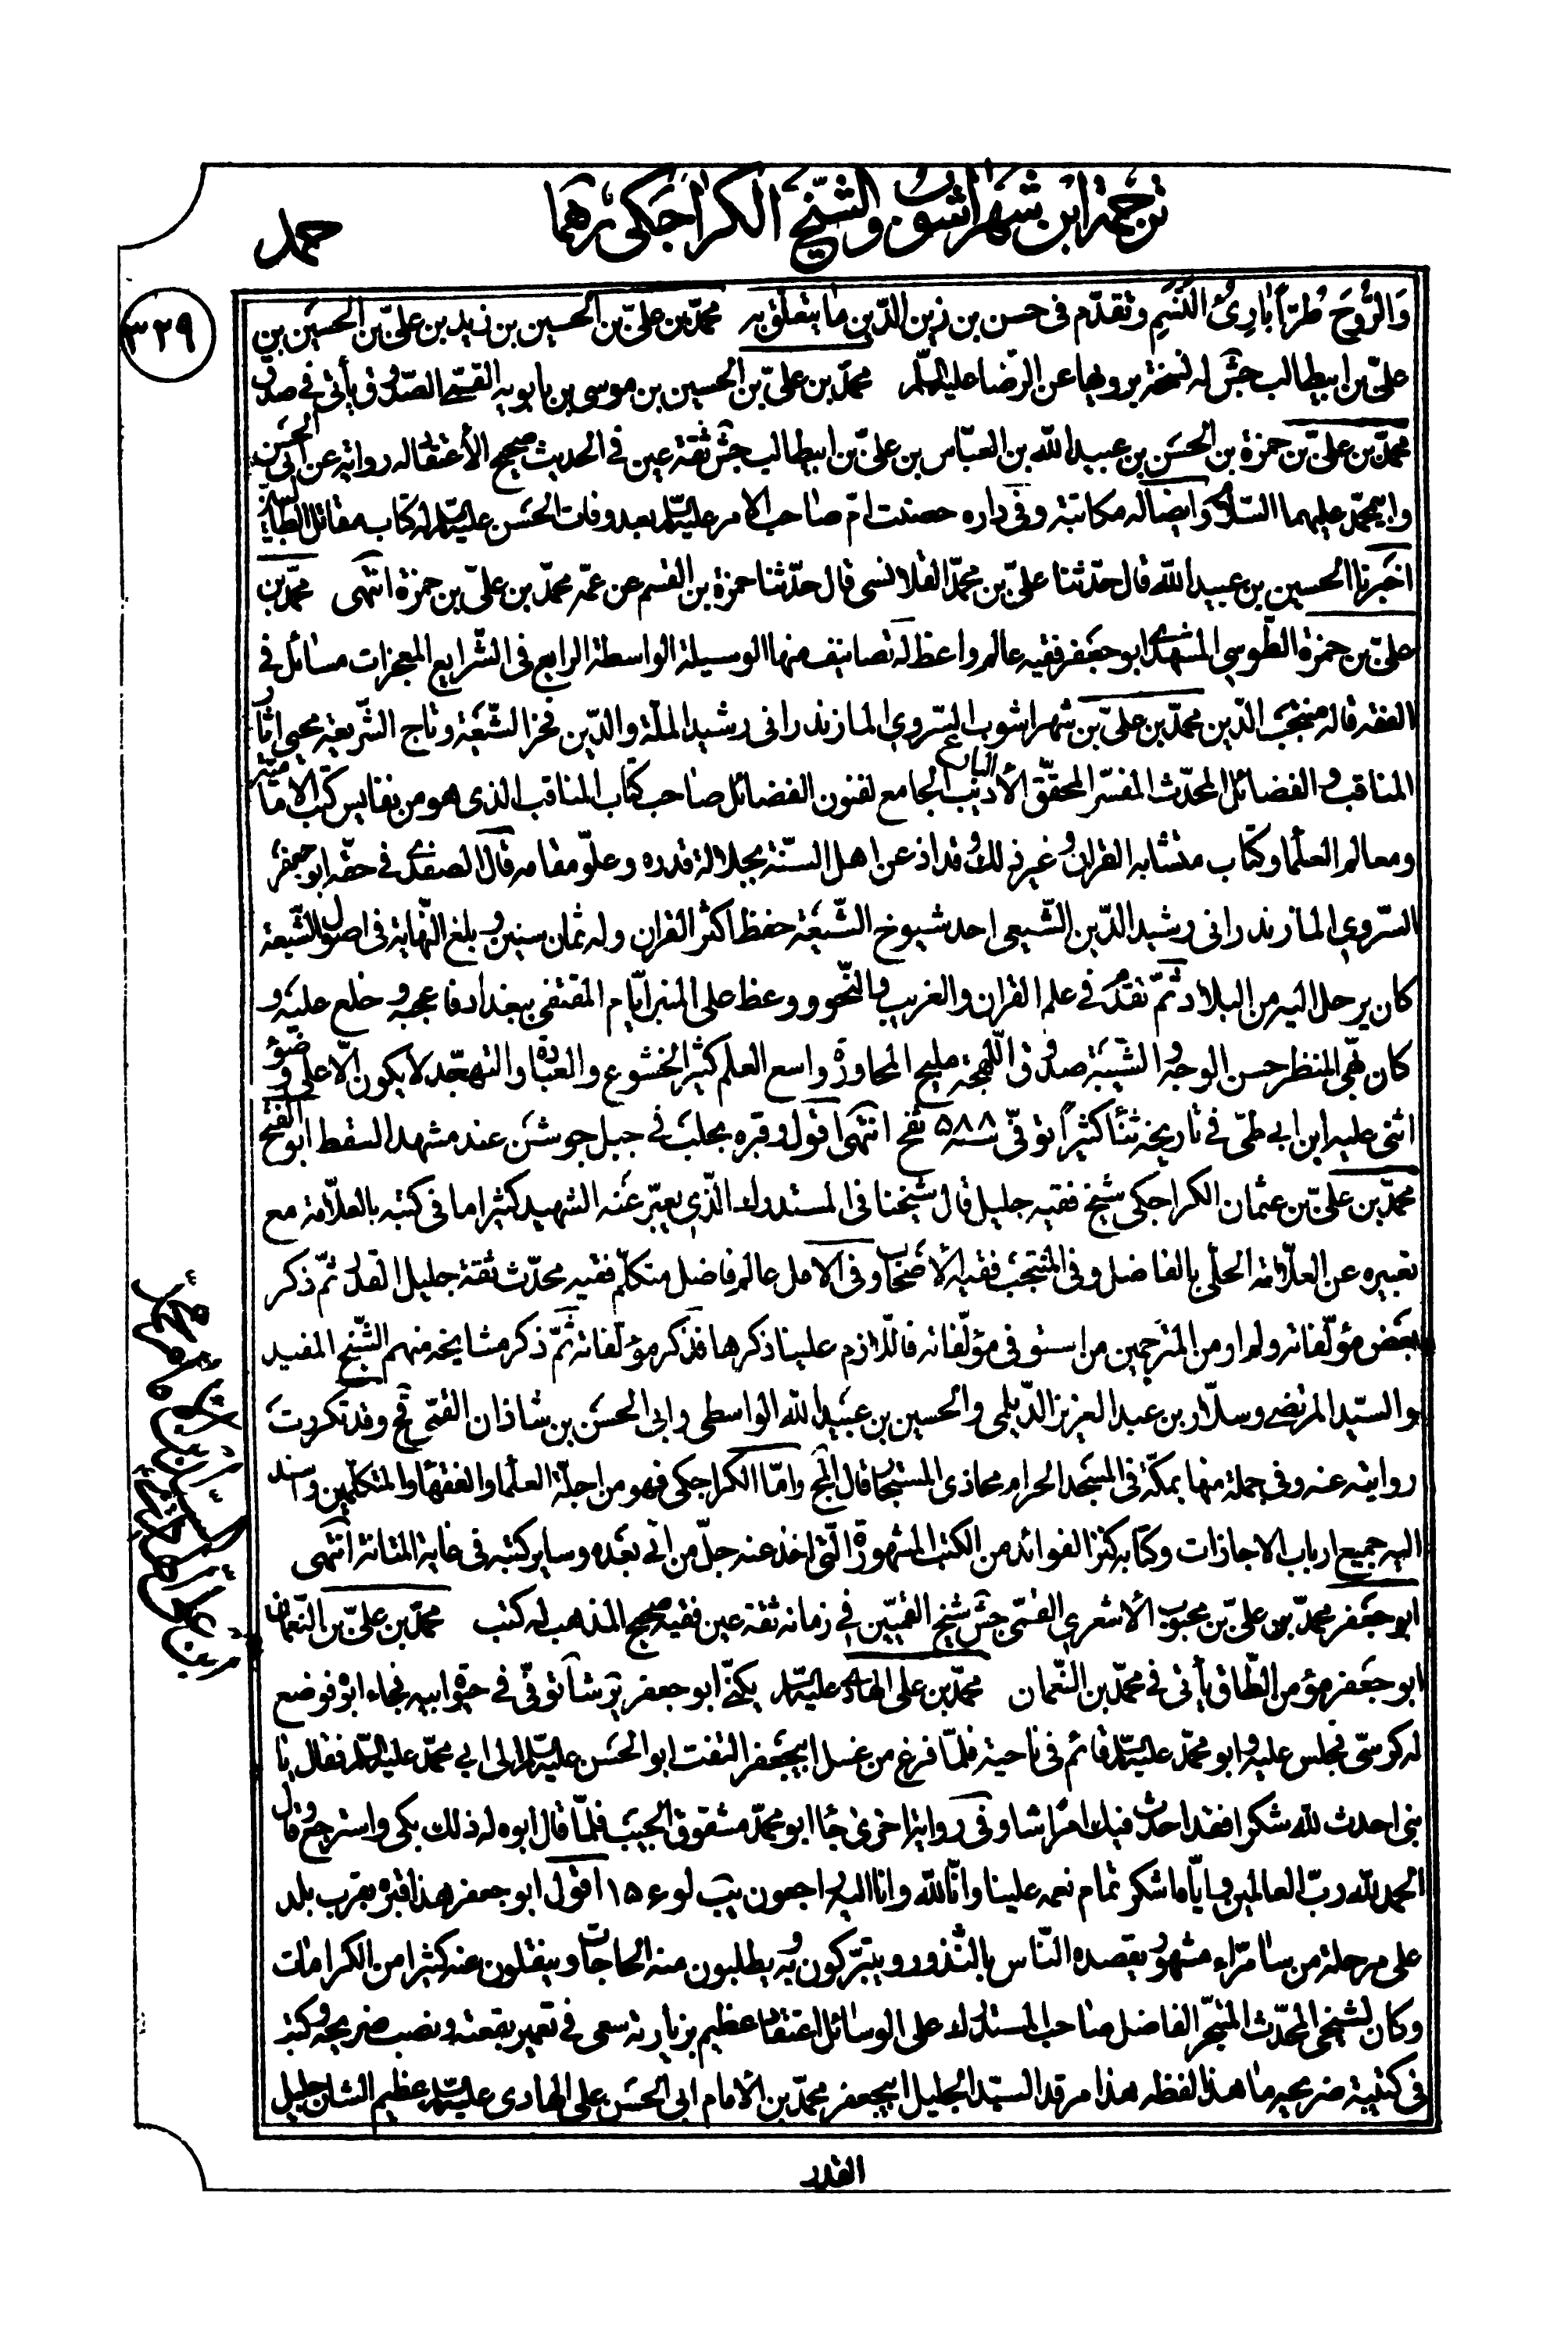 ترجمة ابن شهراشوب والشيخ الكراجكي رهما
حمد
٣٢٩
وَالرُّوحَ طُرّاً بٰارِئُ النَّسَمِ وتقدّم فى حسن بن زين الدّين ما يتعلّق به محمّد بن علىّ بن الحسين بن زيد بن علىّ بن الحسين بن
علىّ بن ابيطالب جش له نسخة يرويها عن الرّضا عليه السلم محمّد بن علىّ بن الحسين بن موسى بن بابويه القمّى الصّدوق يأتى فى صدق
محمّد بن علىّ بن حمزة بن الحسَن بن عبيد الله بن العبّاس بن علىّ بن ابيطالب جش ثقة عين فى الحديث صحيح الأعتقاد له رواية عن ابى الحسَن
وابيمحمّد عليهما السّلام وايضا له مكاتبة وفى داره حصنت امّ صاحب الامر عليه السّلم بعد وفات الحَسن عليه السّلم له كتاب مقاتل الطالبيّين
اخبرنا الحسين بن عبيد الله قال حدّثنا علىّ بن محمّد القلانسى قال حدّثنا حمزة بن القسم عن عمّه محمّد بن علىّ بن حمزة انتهى محمّد بن
علىّ بن حمزة الطّوسى المشهدى ابو جعفر فقيه عالم واعظ له تصانيف منها الوسيلة الواسطة الرابع فى الشّرايع المعجزات مسائل فى
الفقه قاله منتجب الدّين محمّد بن علىّ بن شهراشوب السّروى المازندرانى رشيد الملّة والدّين فخر الشّيعَة وتاج الشّريعة محيى اثار
المناقب والفضائل المحدّث المفسّر المحقّق الأديب البارع الجامع لفنون الفضائل صاحب كتاب المناقب الذى هو من نفايس كتب الاماميّة
ومعالم العلماء وكتاب متشابه القران وغير ذلك وقد اذعن اهل السّنة بجلالة قدره وعلوّ مقامه قال الصفدى فى حقّه ابو جعفر
السّروى المازندرانى رشيد الدّين الشّيعى احد شيوخ الشّيعَة حفظ اكثر القران وله ثمان سنين وبلغ النّهاية فى اصول الشّيعة
كان يرحل اليه من البلاد ثمّ تقدّم فى علم القران والغريب والنّحو ووعظ على المنبر ايّام المقتفى ببغداد فاعجبه وخلع عليه و
كان بهّى المنظر حسن الوجه والشّيبَة صدوق اللّهجة مليح المحاورة واسع العلم كثير الخشوع والعبادة والتهجّد لا يكون الّا على وضوء
اثنى عليه ابن ابى طىّ فى تاريخه ثناء كثيراً توفّى سنة ٥٨٨ ثفح انتهى اقول وقبره بحلب فى جبل جوشَن عند مشهد السقط ابو الفتح
محمّد بن علىّ بن عثمان الكراجكى شيخ فقيه جليل قال شيخنا فى المستدرك الّذى يعبّر عَنه الشهيد كثيرا ما فى كتبه بالعلّامة مع
تعبيره عن العلّامة الحلّى بالفاضل وفى المنتجب فقيه الأصحاب وفى الامل عالم فاضل متكلّم فقيه محدّث ثقة جليل القدر ثمّ ذكر
بعض مؤلّفاته ولم ار من المترجمين من استوفى مؤلّفاته فاللّازم علينا ذكرها فذكر مؤلّفاته ثمّ ذكر مشايخه منهم الشّيخ المفيد
والسيّد المرتضى وسلّار بن عبد العزيز الدّيلمى والحسين بن عبيد الله الواسطى وابى الحسَن بن شاذان القمّى قح وقد تكررت
روايته عنه وفى جملة منها بمكّة فى المسجد الحرام محاذى المستجار قال المج وامّا الكراجكى فهو من اجلّة العلماء والفقهاء والمتكلّمين واسند
اليه جميع ارباب الاجازات وكتابه كنز الفوائد من الكتب المشهورة الّتى اخذ عنه جلّ من اتى بعَده وساير كتبه فى غاية المتانة انتهى
ابو جعَفر محمّد بن علىّ بن محبوب الأشعرى القمّى جش شيخ القميّين فى زمانه ثقة عين فقيه صحيح المذهب له كتب محمّد بن علىّ بن النّعمان
ابو جعَفر مؤمن الطّاق يأتى فى محمّد بن النّعمان محمّد بن على الهادى عليه السّلم يكنّى ابو جعفر توفّى فى حيوة ابيه فجاء ابوه فوضع
له كرسىّ فجلس عليه وابو محمّد عليه السّلم قائم فى ناحية فلمّا فرغ من غسل ابيجَعفر التفت ابو الحَسن عليه السّلم الى ابى محمّد عليه السّلم فقال يا
بنى احدث لله شكرا فقد احدث فيك امراً شا وفى رواية اخرى جاء ابو محمّد مشقوق الجيب فلمّا قال ابوه له ذلك بكى واسترجع وقال
الحمد لله ربّ العالمين وايّاه اشكر تمام نعمه علينا وانّا لله وانا اليه راجعون اقول ابو جعفر هذا قبره بقرب بلد
على مرحلة من سامرّاء مشهور يقصده النّاس بالنّذور ويتبرّكون به ويطلبون منه الحاجات وينقلون عنه كثيرا من الكرامات
وكان لشيخى المحدّث المتبحّر الفاضل صاحب المستدرك على الوسائل اعتقاد عظيم بزيارته سعى فى تعمير بقعته ونصب ضريحه وكتب
فى كتيبة ضريحه ما هذا لفظه هذا مرقد السيّد الجليل ابيجعفر محمّد بن الأمام ابى الحسَن على الهادى عليه السّلم عظيم الشان جليل
القدر